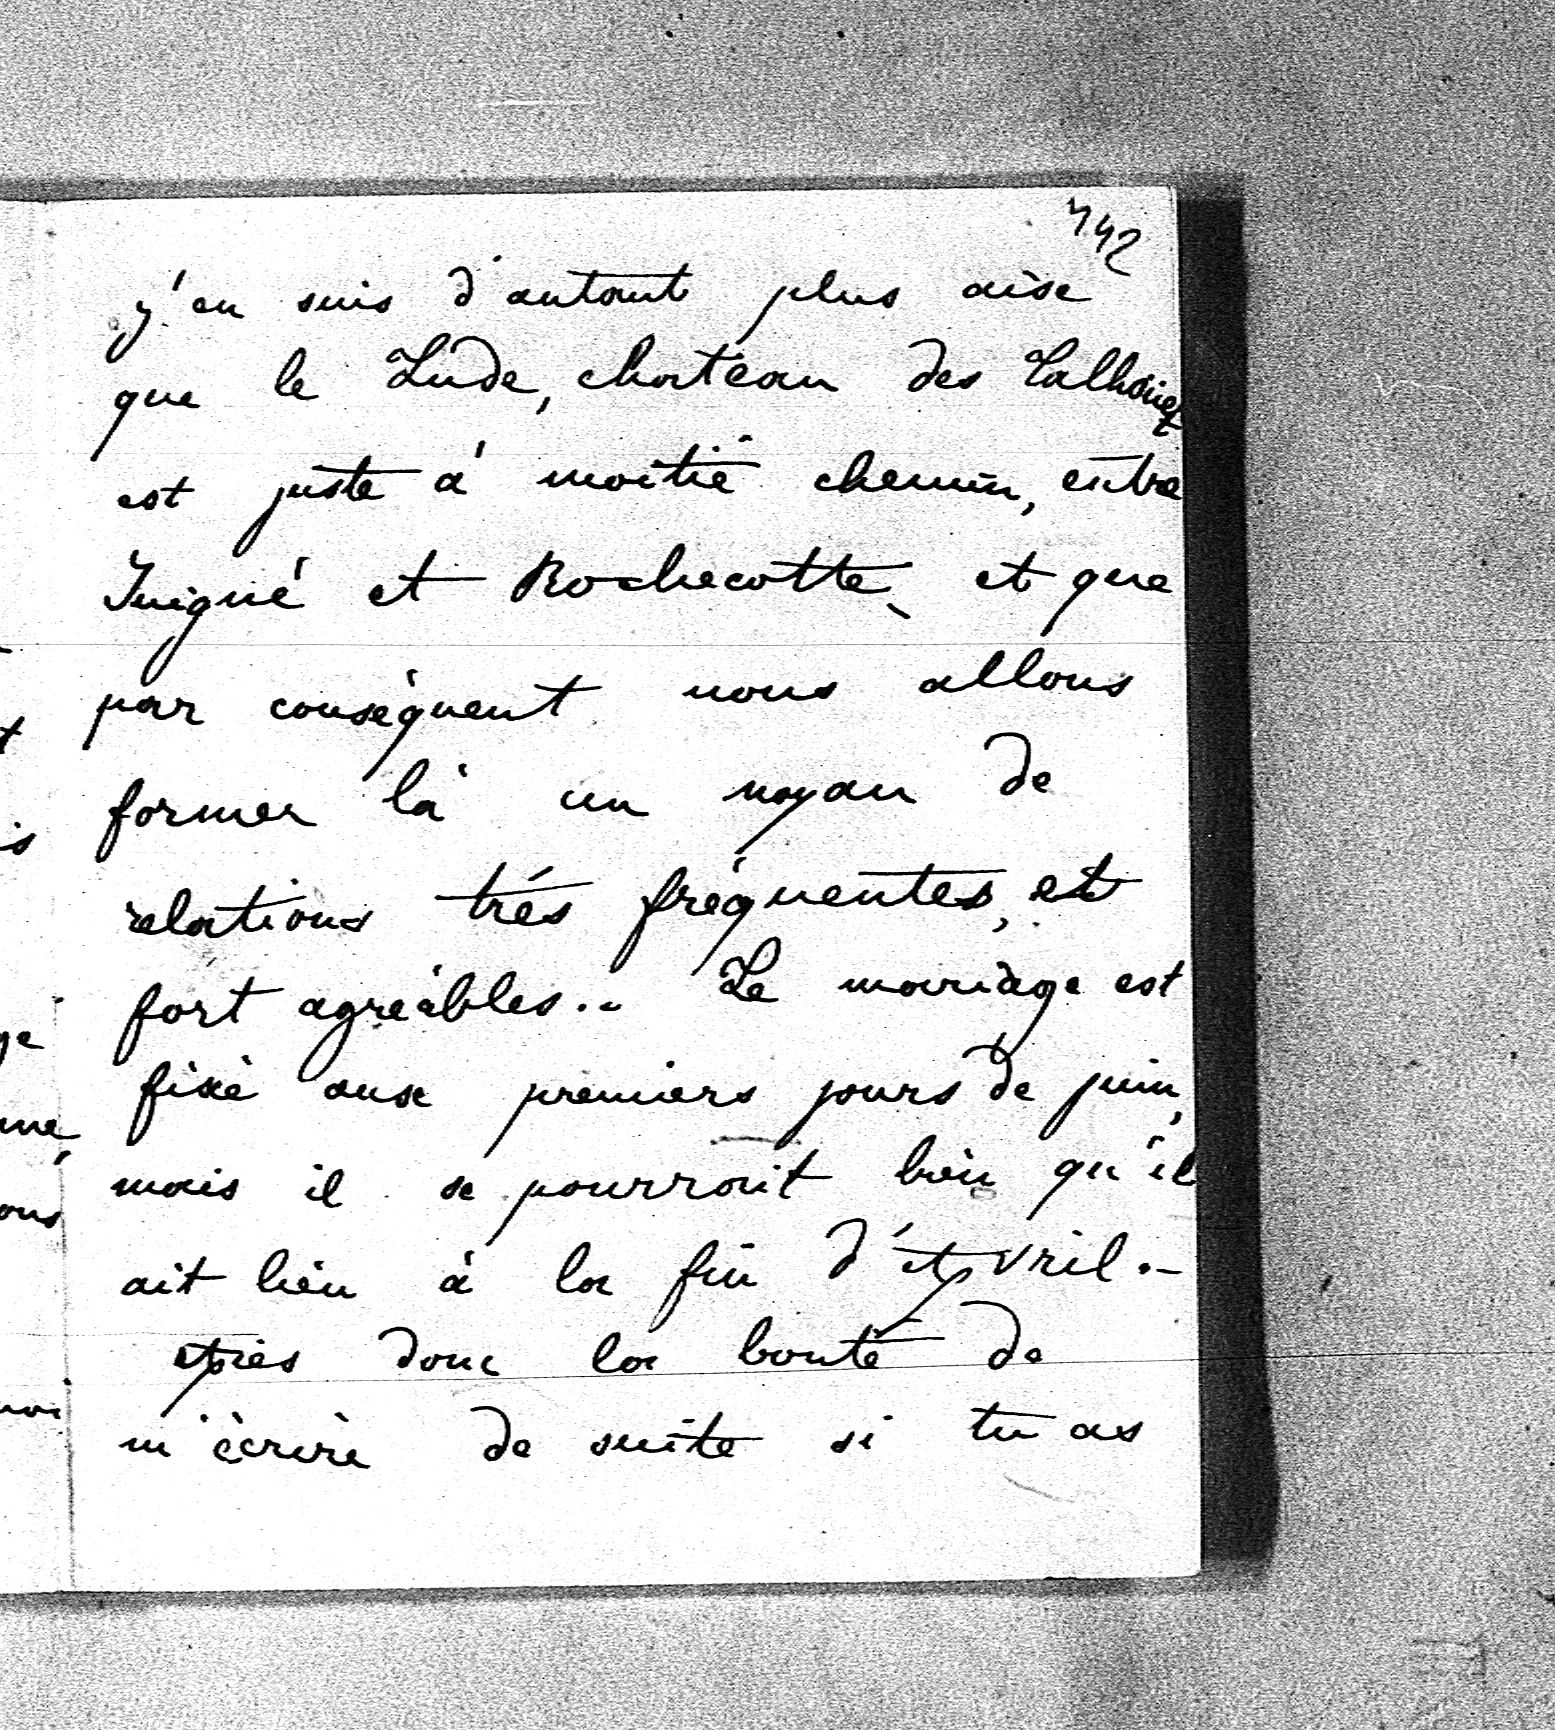 442
j'en suis d'autant plus aise
que le Lude, château des Talhouët
est juste à moitié chemin, entre
Juigné et Rochecotte, et que
par conséquent nous allons
former là un noyau de
relations très fréquentes, et
fort agréables.. Le mariage est
fixé aux premiers jours de juin,
mais il se pourrait bien qu'il
ait lieu à la fin d'Avril.-
Aies donc la bonté de
m'écrire de suite si tu as